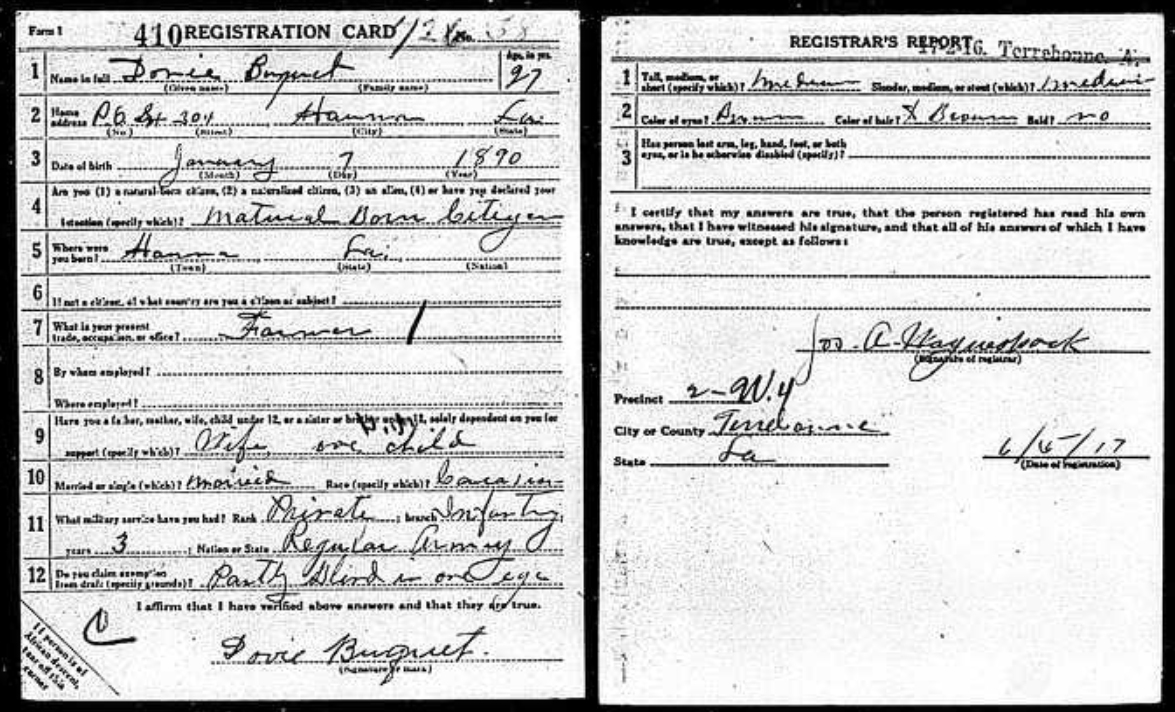 Form 1 410 REGISTRATION CARD No. 38
1 Name in full Dovie Buquet Age, in yrs. 27
(Given name) (Family name)
2 Home address P.O. La.
(No.) (Street) (City) (State)
3 Date of birth January 7 1890
(Month) (Day) (Year)
4 Are you (1) a natural-born citizen, (2) a naturalized citizen, (3) an alien, (4) or have you declared your
intention (specify which)? Natural Born Citizen
5 Where were you born? La.
(Town) (State) (Nation)
6 If not a citizen, of what country are you a citizen or subject?
7 What is your present trade, occupation, or office? Farmer
8 By whom employed?
Where employed?
9 Have you a father, mother, wife, child under 12, or a sister or brother under 12, solely dependent on you for
support (specify which)? Wife, one child
10 Married or single (which)? Married Race (specify which)?
11 What military service have you had? Rank Private ; branch Infantry ;
years 3 ; Nation or State Regular Army
12 Do you claim exemption from draft (specify grounds)? Partly Blind in one Eye
I affirm that I have verified above answers and that they are true.
Dovie Buquet.
(Signature or mark)
If person is of
African descent,
tear off this
corner
REGISTRAR'S REPORT Terrebonne
1 Tall, medium, or short (specify which)? Medium Slender, medium, or stout (which)? Medium
2 Color of eyes? Brown Color of hair? Brown Bald? no
3 Has person lost arm, leg, hand, foot, or both eyes, or is he otherwise disabled (specify)?
I certify that my answers are true, that the person registered has read his own
answers, that I have witnessed his signature, and that all of his answers of which I have
knowledge are true, except as follows:
Jos. A.
(Signature of registrar)
Precinct 2-W.4
City or County Terrebonne
State La
6/5/17
(Date of registration)